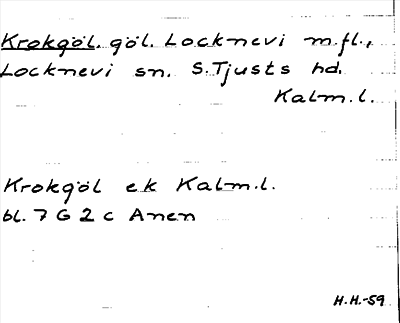 Krokgöl. göl. Locknevi m.fl.,
Locknevi sn. S.Tjusts hd.
Kalm.l.
Krokgöl ek Kalm.l.
bl. 7 G 2 c Anen
H.H.-59